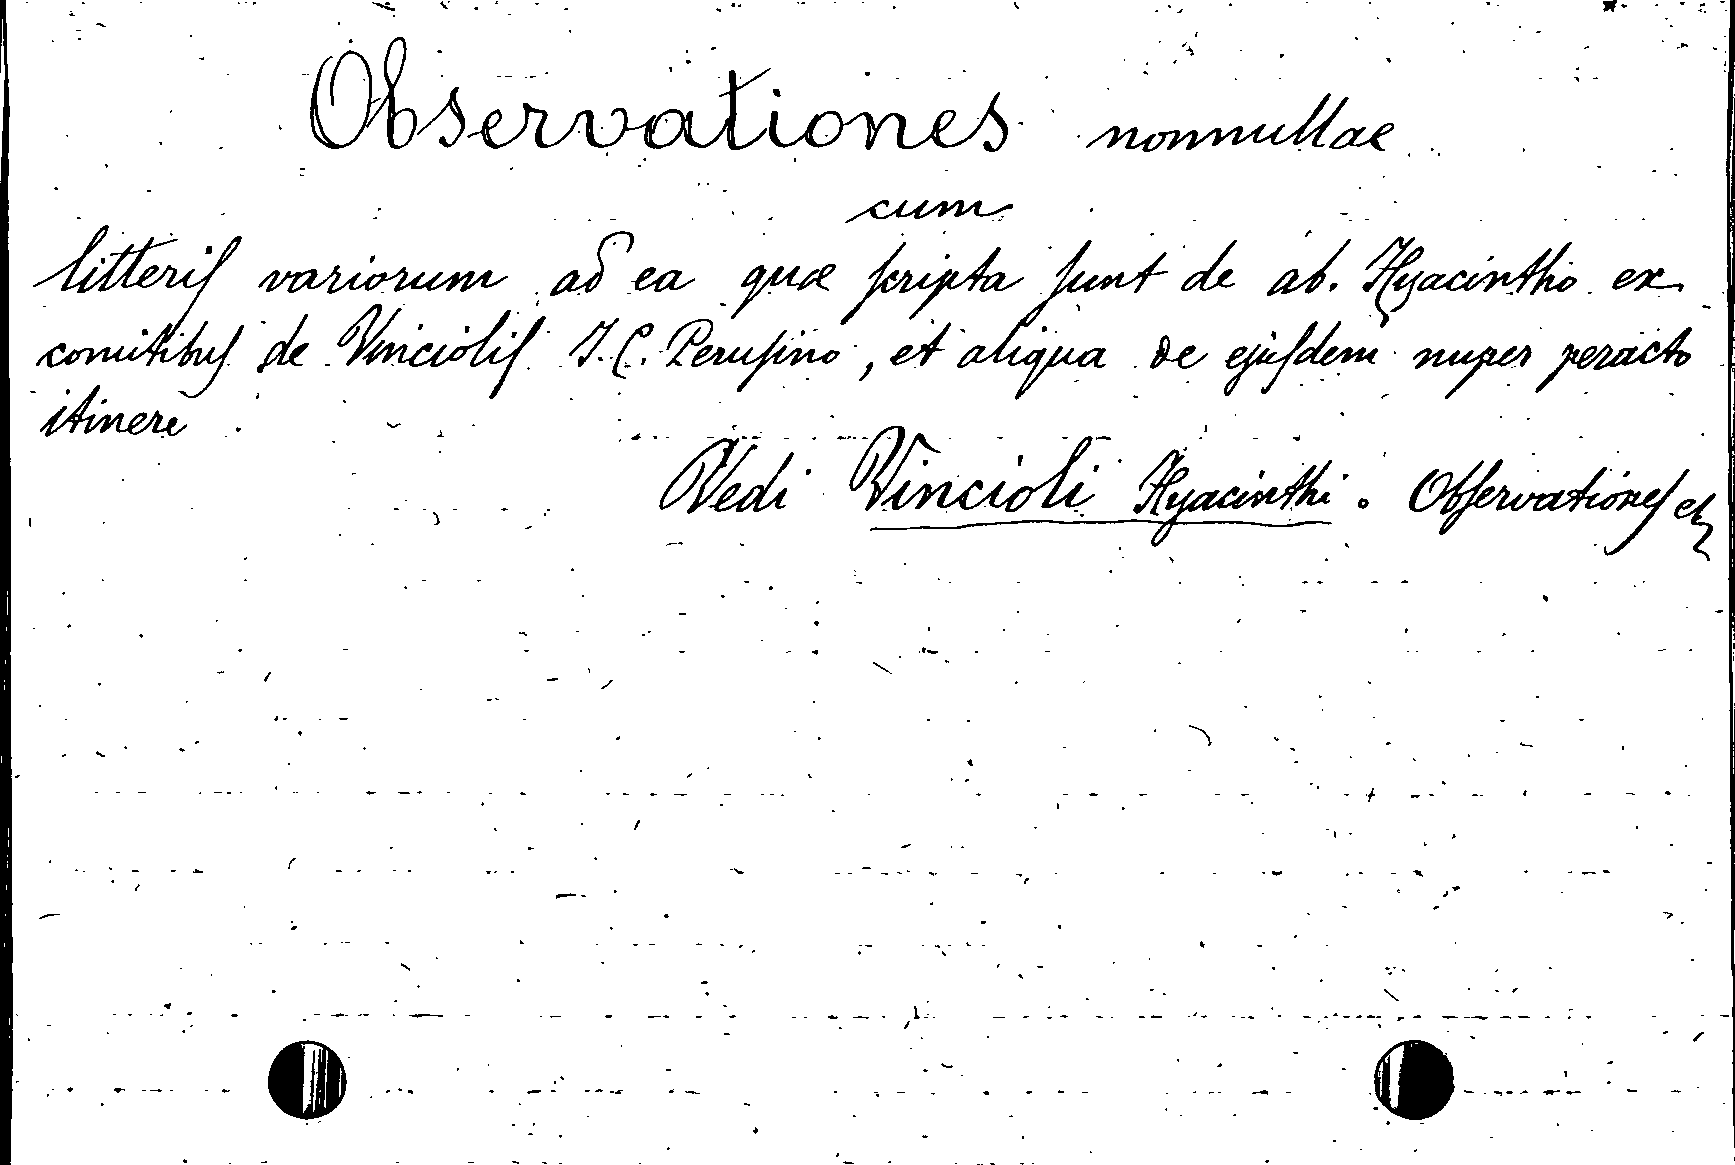 Observationes nonnullae
cum
litteris variorum ad ea quæ scripta sunt de ab. Hyacintho ex
comitibus de Vinciolis J. C. Perusino, et aliqua de ejusdem nuper peracto
itinere
Vedi Vincioli Hyacinthi. Observationes etc